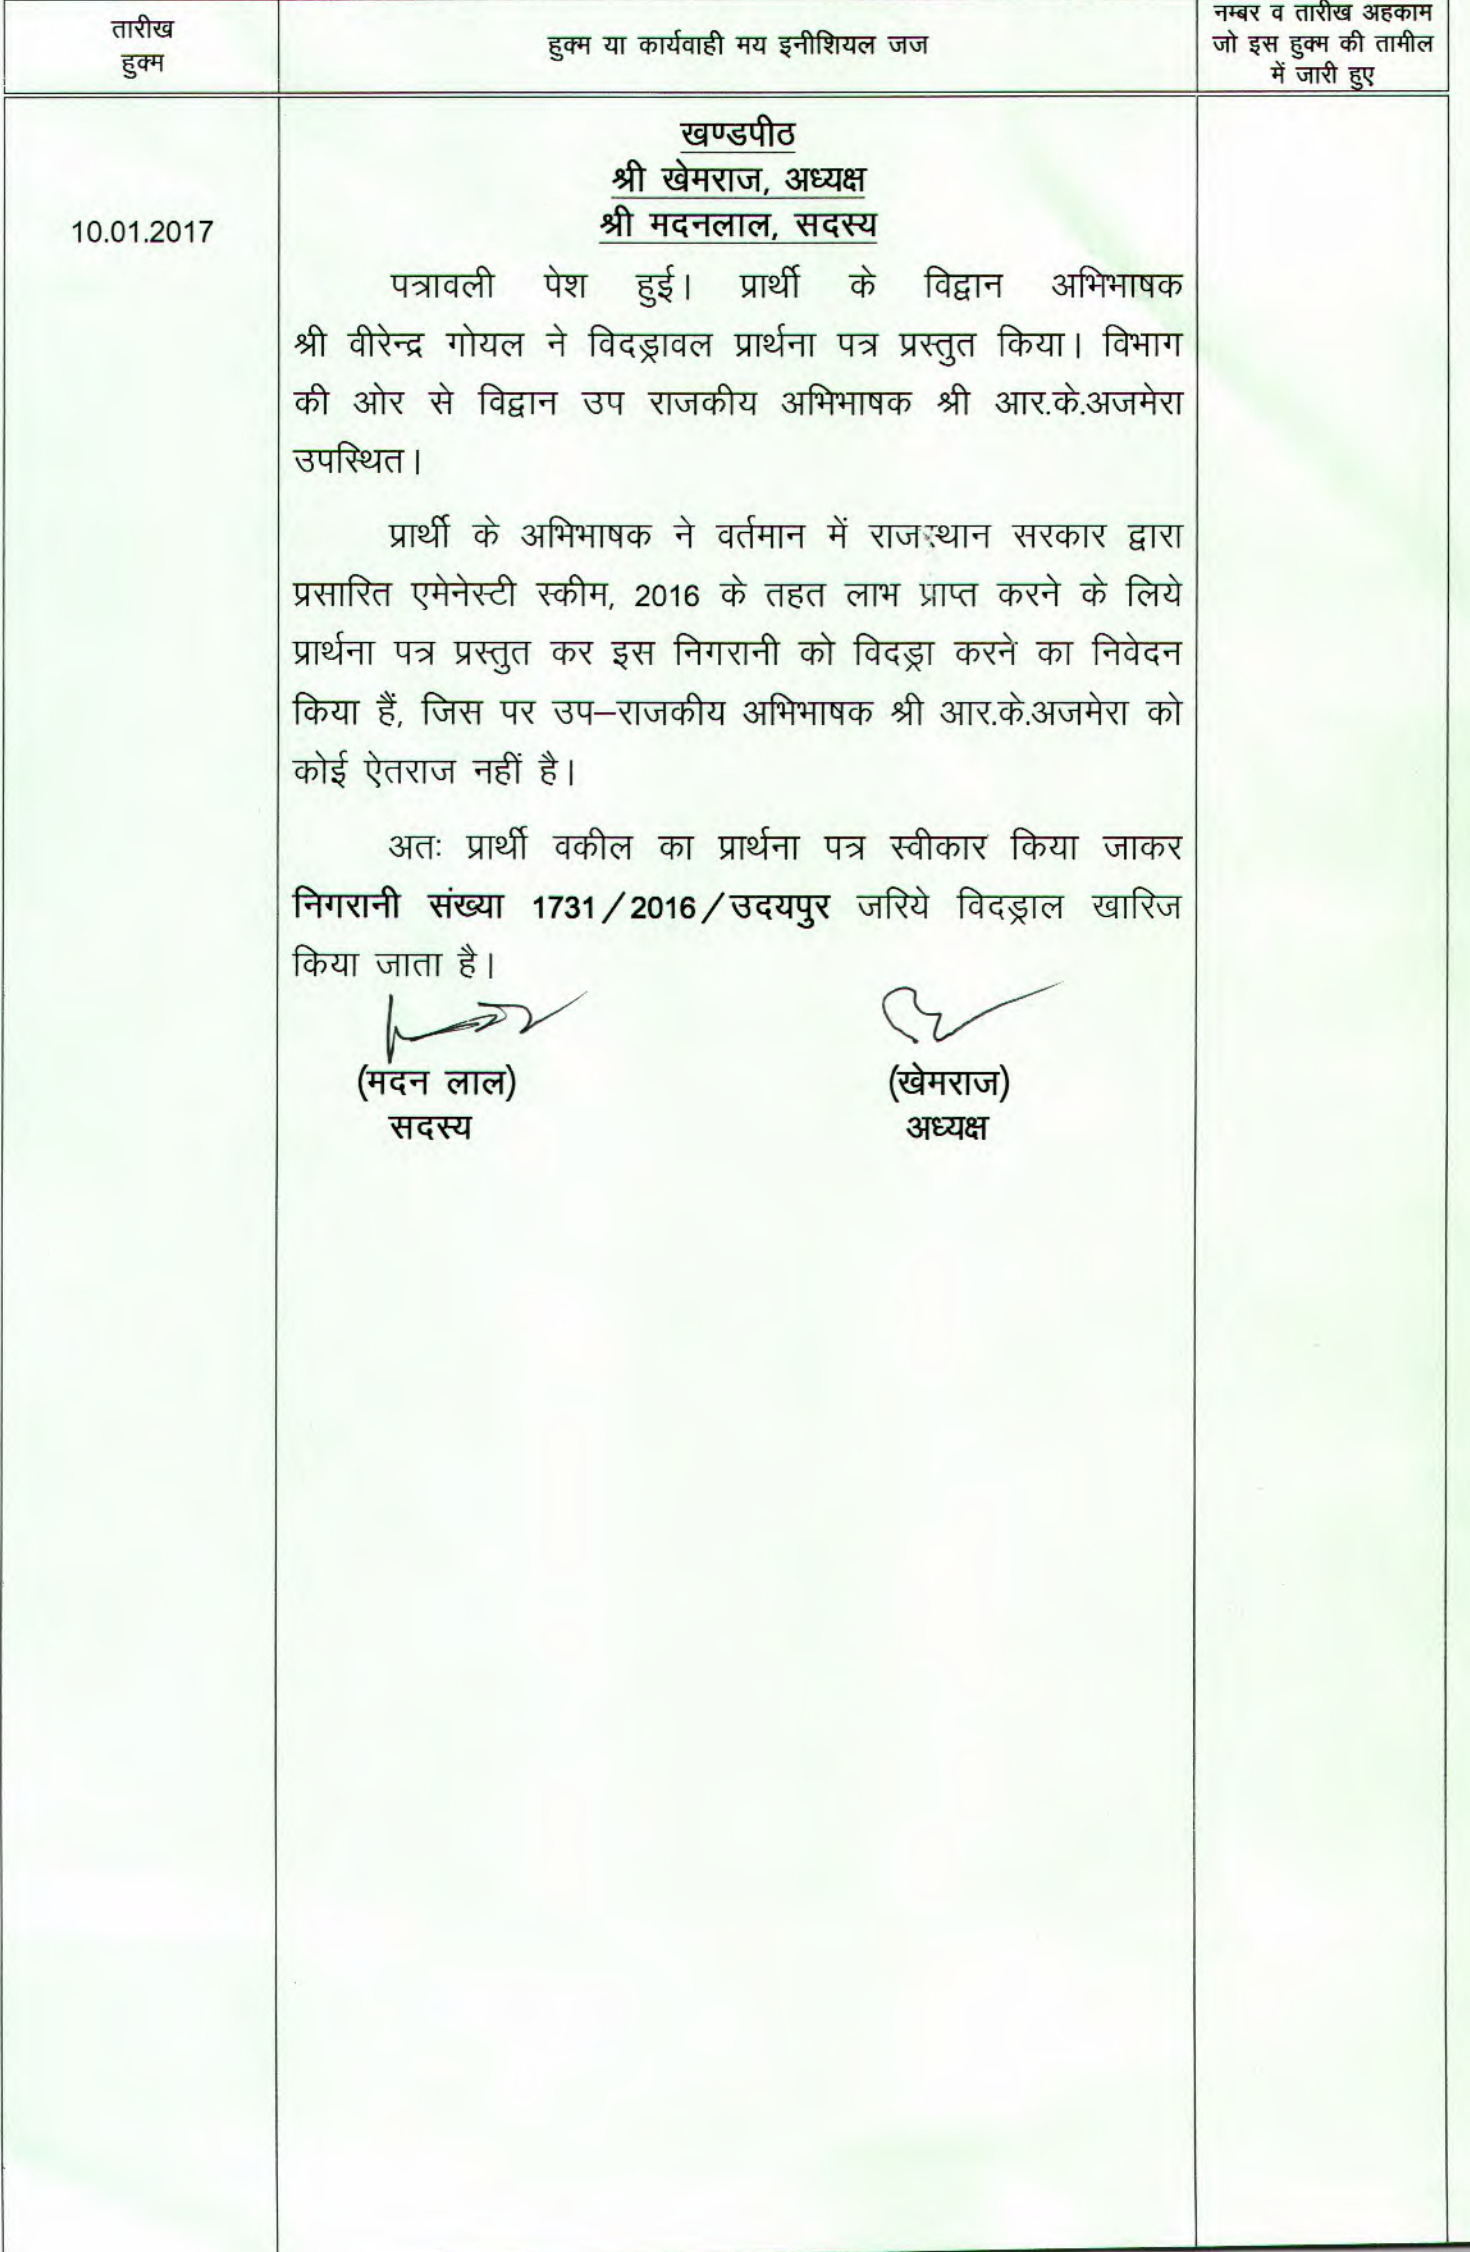 तारीख
हुक्म
हुक्म या कार्यवाही मय इनीशियल जज
नम्बर व तारीख अहकाम
जो इस हुक्म की तामील
में जारी हुए
10.01.2017
खण्डपीठ
श्री खेमराज, अध्यक्ष
श्री मदनलाल, सदस्य
पत्रावली पेश हुई। प्रार्थी के विद्वान अभिभाषक
श्री वीरेन्द्र गोयल ने विदड्रावल प्रार्थना पत्र प्रस्तुत किया। विभाग
की ओर से विद्वान उप राजकीय अभिभाषक श्री आर.के.अजमेरा
उपस्थित।
प्रार्थी के अभिभाषक ने वर्तमान में राजस्थान सरकार द्वारा
प्रसारित एमेनेस्टी स्कीम, 2016 के तहत लाभ प्राप्त करने के लिये
प्रार्थना पत्र प्रस्तुत कर इस निगरानी को विदड्रा करने का निवेदन
किया हैं, जिस पर उप–राजकीय अभिभाषक श्री आर.के.अजमेरा को
कोई ऐतराज नहीं है।
अतः प्रार्थी वकील का प्रार्थना पत्र स्वीकार किया जाकर
निगरानी संख्या 1731/2016/उदयपुर जरिये विदड्राल खारिज
किया जाता है।
(मदन लाल) (खेमराज)
सदस्य अध्यक्ष